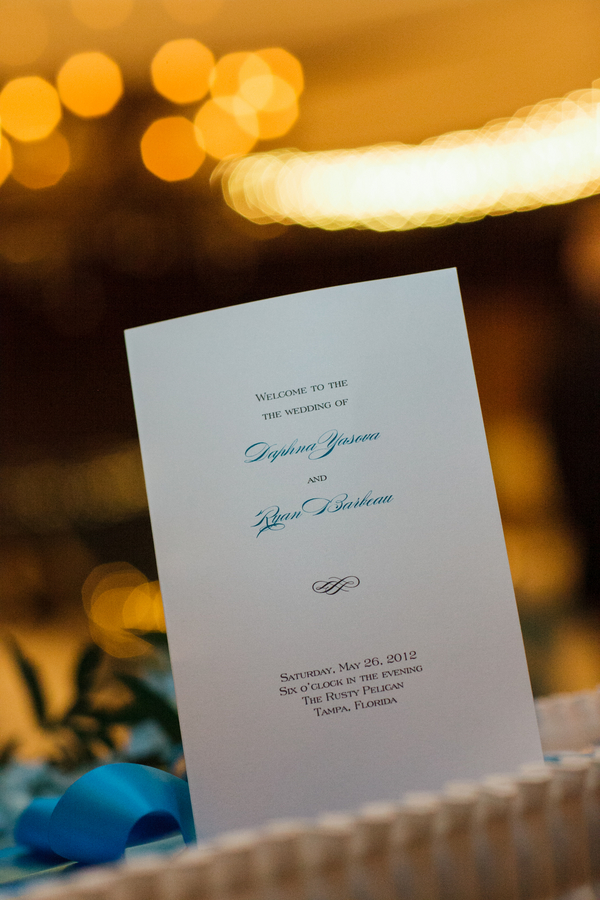 Welcome to the
the wedding of
Daphna Yasova
and
Ryan Barbeau
Saturday, May 26, 2012
Six o'clock in the evening
The Rusty Pelican
Tampa, Florida